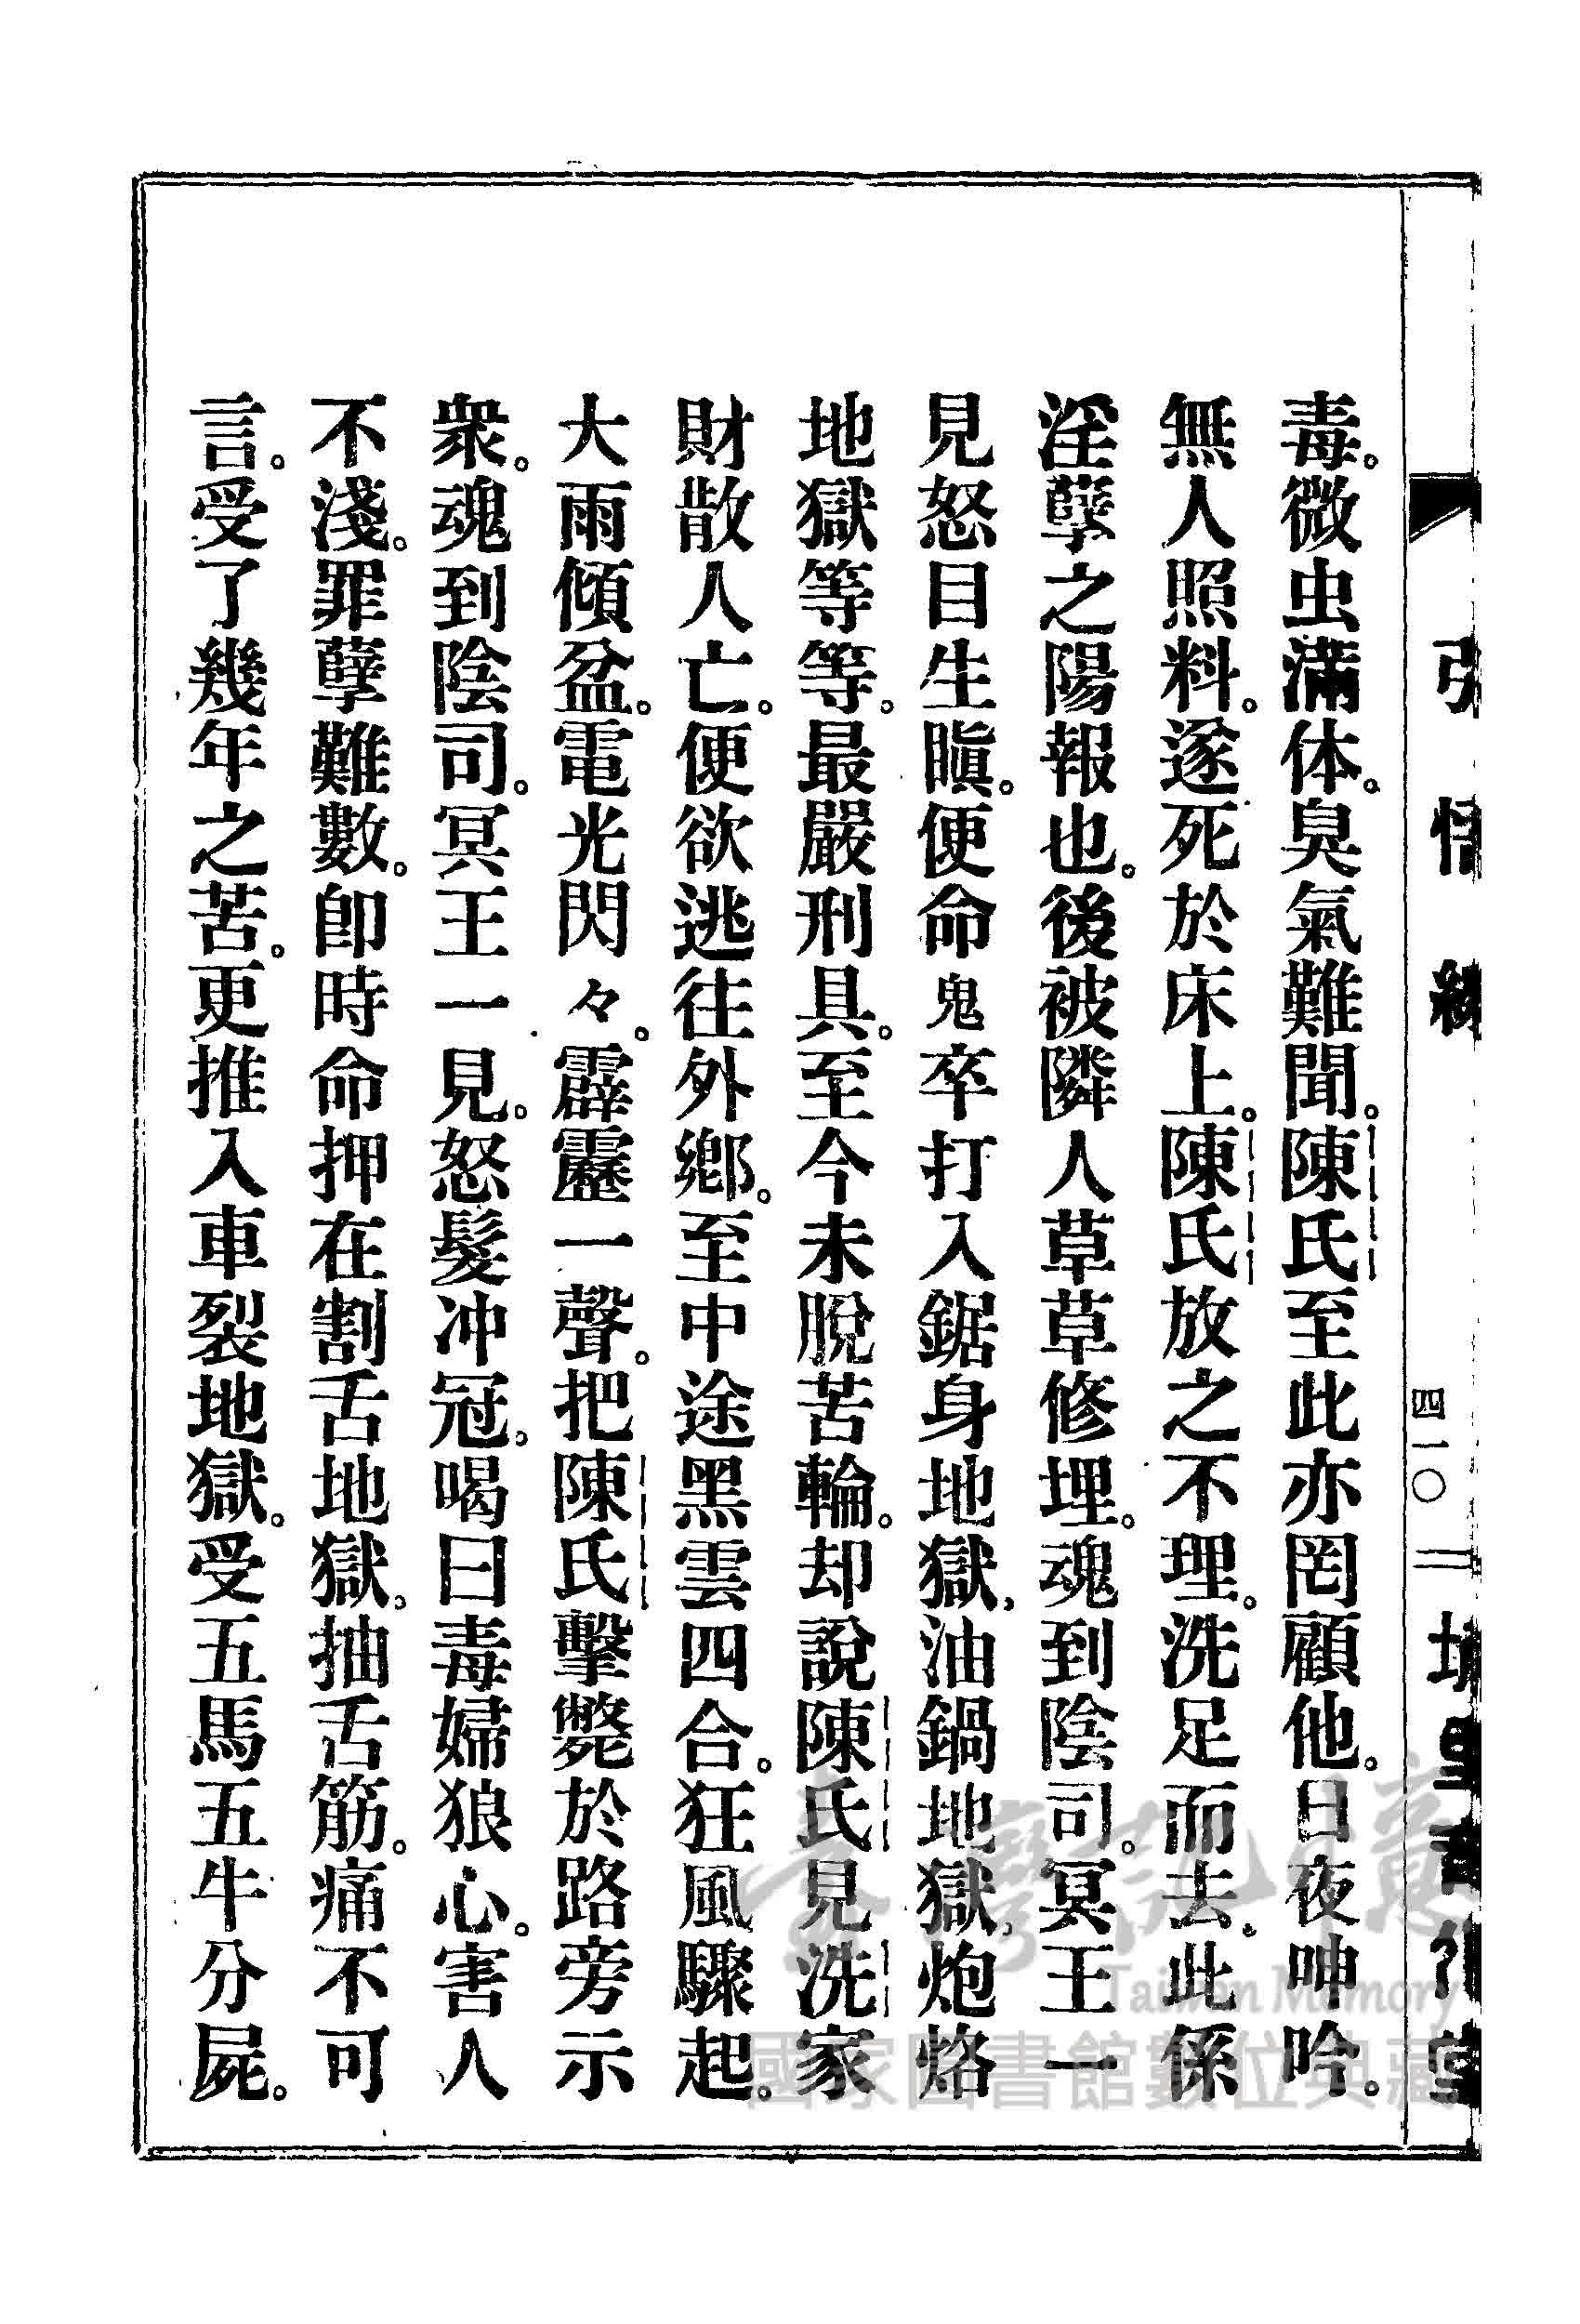 毒。微虫滿体。臭氣難聞。陳氏至此亦罔顧他。日夜呻吟。
無人照料。遂死於床上。陳氏放之不理。洗足而去。此係
淫孽之陽報也。後被隣人草草修埋。魂到陰司。冥王一
見怒目生瞋。便命鬼卒打入鋸身地獄，油鍋地獄，炮烙
地獄等等。最嚴刑具。至今未脫苦輪。却說陳氏見洗家
財散人亡。便欲逃往外鄉。至中途黑雲四合。狂風驟起。
大雨傾盆。電光閃々。霹靂一聲。把陳氏擊斃於路旁示
衆。魂到陰司。冥王一見。怒髮冲冠。喝曰毒婦狼心。害人
不淺。罪孽難數。卽時命押在割舌地獄。抽舌筋。痛不可
言。受了幾年之苦。更推入車裂地獄。受五馬五牛分屍。
四一〇
Taiwan Memory
國家圖書館數位典藏